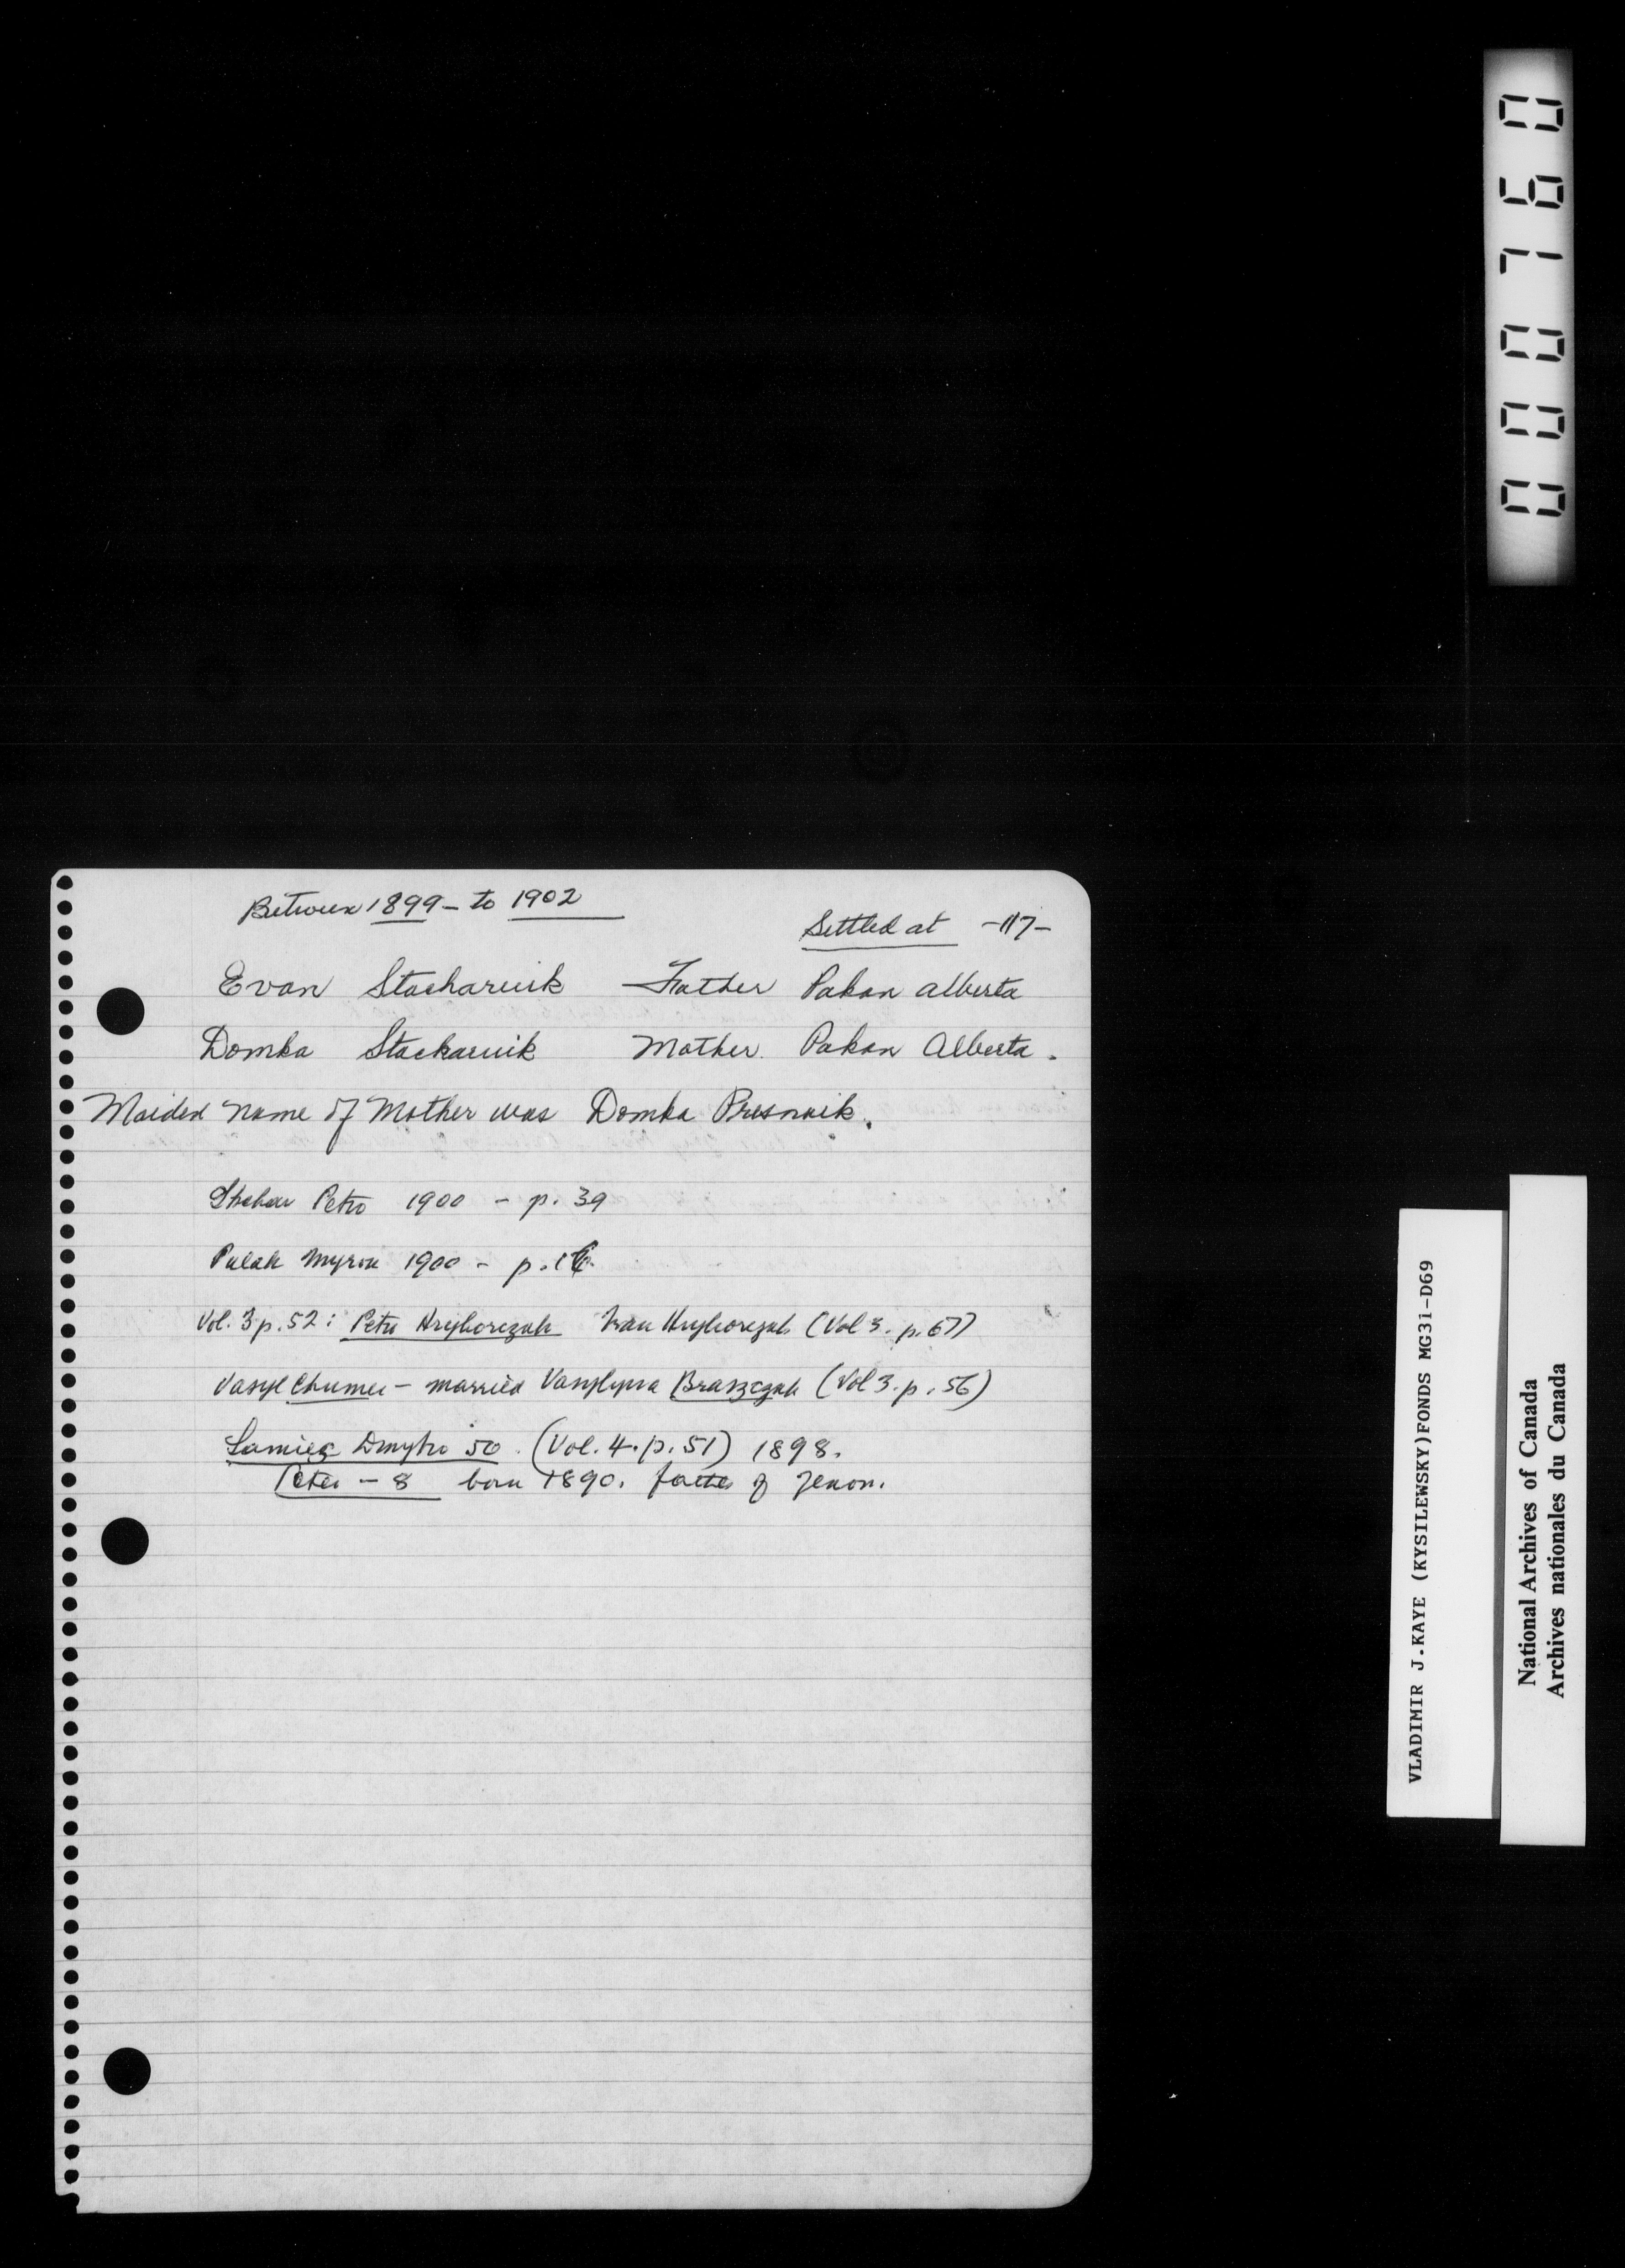 Between 1899 - to 1902
Settled at -117-
Evan Stacharuik Father Pakan Alberta
Domka Stacharuik Mother. Pakan Alberta.
Maiden name of Mother was Domka Presnuik.
Petro 1900 - p. 39
Pulak Myron 1900 - p. 16
Vol. 3 p. 52: Petro Hryhorczuk Ivan Hryhorczuk (Vol 3. p. 67)
Vasyl Chumer - married Vasylyna Braszczuk (Vol 3. p. 56)
Samiec Dmytro 50. (Vol. 4. p. 51) 1898.
Peter - 8 born 1890. father of Zenon.
000760
VLADIMIR J.KAYE (KYSILEWSKY)FONDS MG31-D69
National Archives of Canada
Archives nationales du Canada